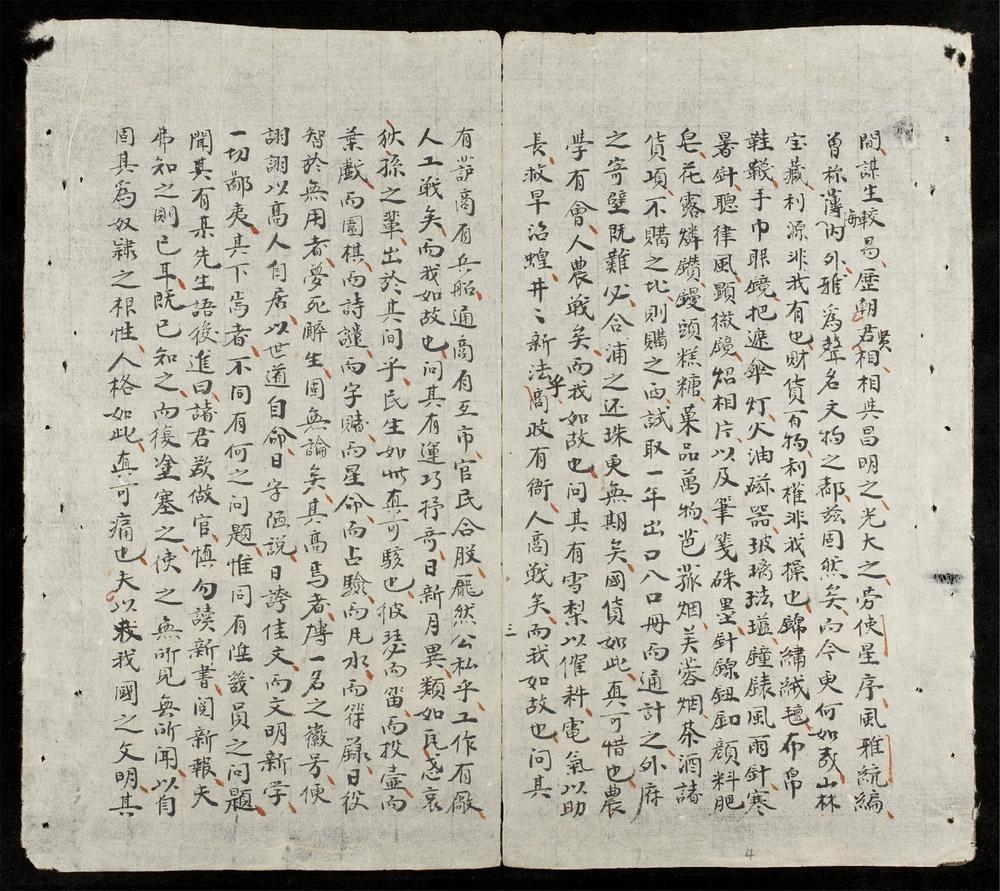 間謀生較易歷朝君吳相相與昌明之光大之旁使星序風雅統編
曾称薄海內外雅為聲名文物之都玆固然矣向今更何如我山林
宝藏利源非我有也財貨百物利権非我操也錦繡絨氊布帛
鞋韈手巾眼鏡把遮傘灯火油磁器玻璃琺瑯鐘錶風雨針寒
暑針聽律風顕微鏡炤相片以及筆箋硃墨針線鈕釦顔料肥
皂花露燐鑽饅頭糕糖菓品萬物芭菰烟芙蓉烟茶酒諸
貨項不購之北則購之西試取一年出口入口冊而通計之外府
之寄璧既難必合浦之还珠更無期矣國貨如此真可惜也農
學有會人農戦矣而我如故也問其有雪梨以催耕電氣以助
長救旱治蝗井〻新法乎商政有衙人商戦矣而我如故也問其
三
有部商有兵船通商有互市官民合股龎然公私乎工作有廠
人工戦矣而我如故也問其有運巧抒竒日新月異類如瓦忒哀
狄孫之輩出於其間乎民生如此真可駭也彼瑟而畱而投壷而
葉戲而圍棋而詩謎而字賭而星命而占驗而凡水而符籙日役
智於無用者夢死醉生固無論矣其高焉者慱一名之徽号便
詡詡以高人自居以世道自命日字陋説日誇佳文而文明新学
一切鄙夷其下焉者不同有何之问題惟同有陞幾員之问題
聞其有某先生語後進曰諸君欲做官慎勿讀新書閲新報夫
弗知之則已耳既已知之而復塗塞之使之無所見無所聞以自
固其為奴隷之根性人格如此真可痛也夫以我國之文明其
4